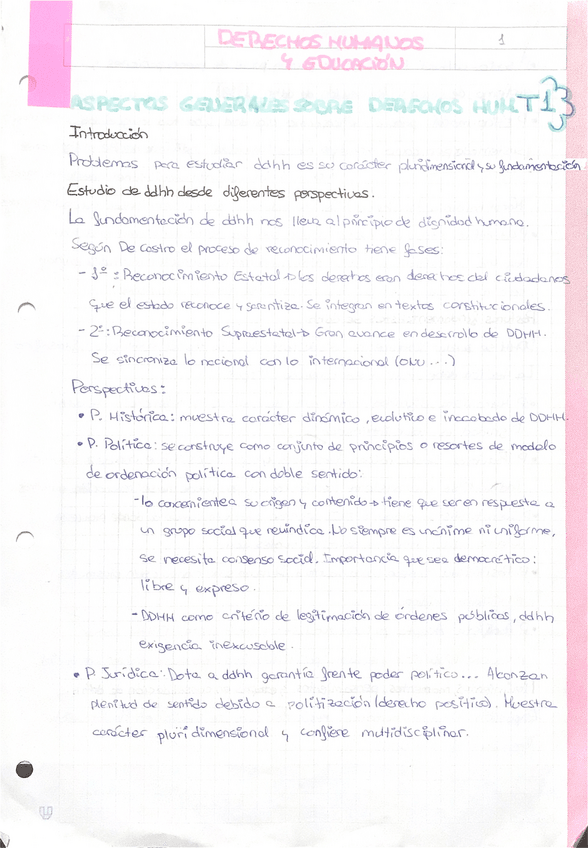 DERECHOS HUMANOS 1
Y EDUCACIÓN
ASPECTOS GENERALES SOBRE DERECHOS HUM. T13
Introducción
Problemas para estudiar ddhh es su carácter pluridimensional y su fundamentación
Estudio de ddhh desde diferentes perspectivas.
La fundamentación de ddhh nos lleva al principio de dignidad humana.
Según De castro el proceso de reconocimiento tiene fases:
- 1º: Reconocimiento Estatal → los derechos eran derechos del ciudadanos
que el estado reconoce y garantiza. Se integran en textos constitucionales.
- 2º: Reconocimiento Supraestatal → Gran avance en desarrollo de DDHH.
Se sincroniza lo nacional con lo internacional (ONU...)
Perspectivas:
• P. Histórica: muestra carácter dinámico, evolutivo e inacabado de DDHH.
• P. Política: se construye como conjunto de principios o resortes de modelo
de ordenación política con doble sentido:
- lo concerniente a su origen y contenido → tiene que ser en respuesta a
un grupo social que reivindica. No siempre es unánime ni uniforme,
se necesita consenso social. Importancia que sea democrático:
libre y expreso.
- DDHH como criterio de legitimación de órdenes públicos, ddhh
exigencia inexcusable.
• P. Jurídica: Dota a ddhh garantía frente poder político... Alcanzan
plenitud de sentido debido a politización (derecho positivo). Muestra
carácter pluridimensional y confiere multidisciplinar.